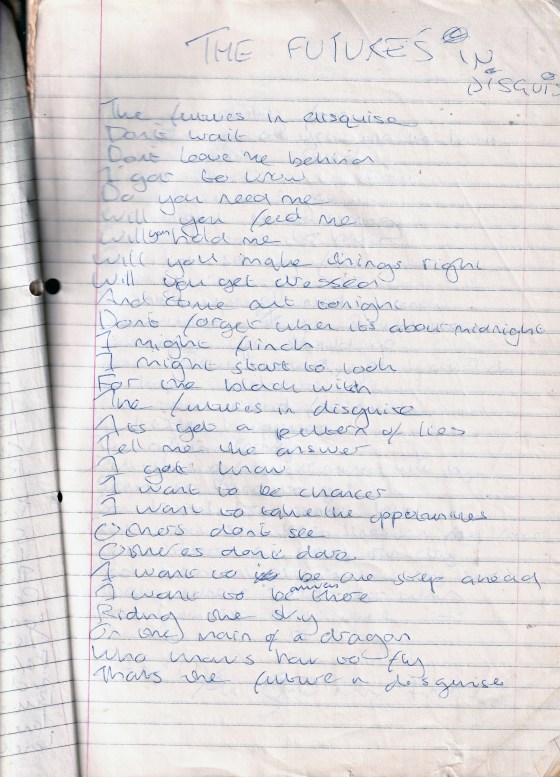 THE FUTURES IN
DISGUIS
The futures in disguise
Dont wait
Dont leave me behind
I got to know
Do you need me
Will you feed me
Will you hold me
Will you make things right
Will you get dressed
And come out tonight
Dont forget when its about midnight
I might flinch
I might start to look
For the black witch
The futures in disguise
Its got a pattern of lies
Tell me the answer
I got know
I want to be chancer
I want to take the opportunities
Others dont see
Otheres dont dare
I want to be one step ahead
I want to be there
Riding the sky
On the main of a dragon
Who knows how to fly
Thats the future n disguise